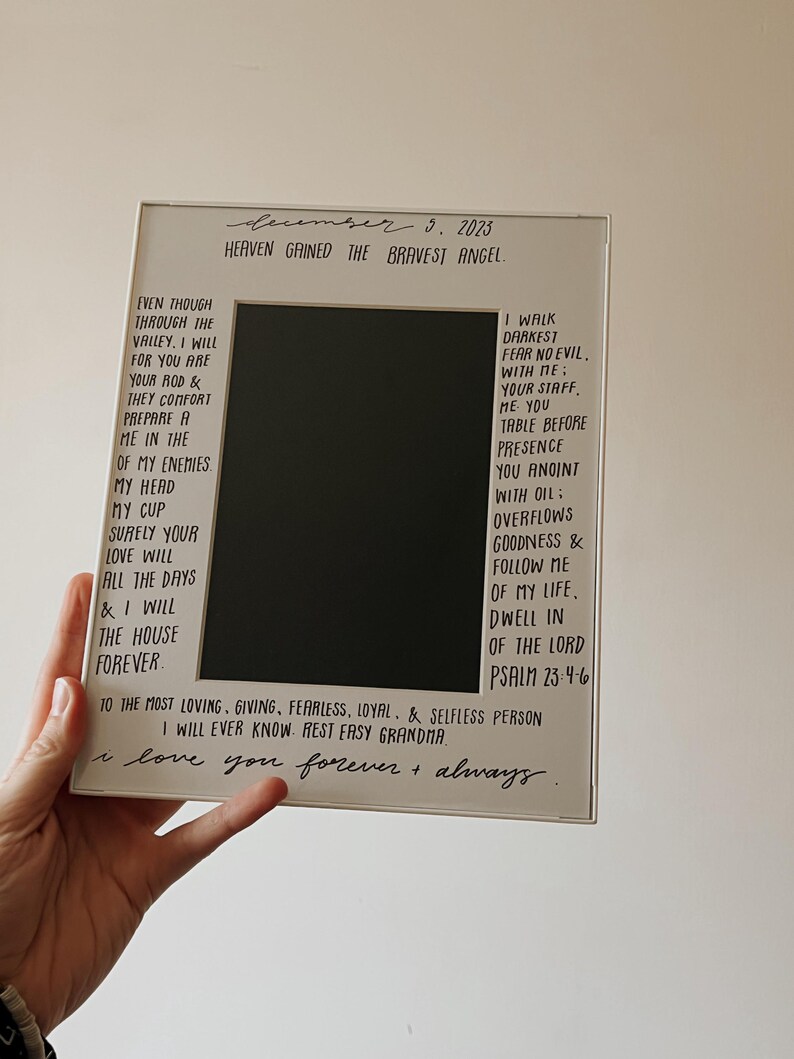 december 5, 2023
HEAVEN GAINED THE BRAVEST ANGEL.
EVEN THOUGH I WALK
THROUGH THE DARKEST
VALLEY, I WILL FEAR NO EVIL,
FOR YOU ARE WITH ME;
YOUR ROD & YOUR STAFF,
THEY COMFORT ME. YOU
PREPARE A TABLE BEFORE
ME IN THE PRESENCE
OF MY ENEMIES. YOU ANOINT
MY HEAD WITH OIL;
MY CUP OVERFLOWS
SURELY YOUR GOODNESS &
LOVE WILL FOLLOW ME
ALL THE DAYS OF MY LIFE,
& I WILL DWELL IN
THE HOUSE OF THE LORD
FOREVER. PSALM 23:4-6
TO THE MOST LOVING, GIVING, FEARLESS, LOYAL, & SELFLESS PERSON
I WILL EVER KNOW. REST EASY GRANDMA.
i love you forever + always.